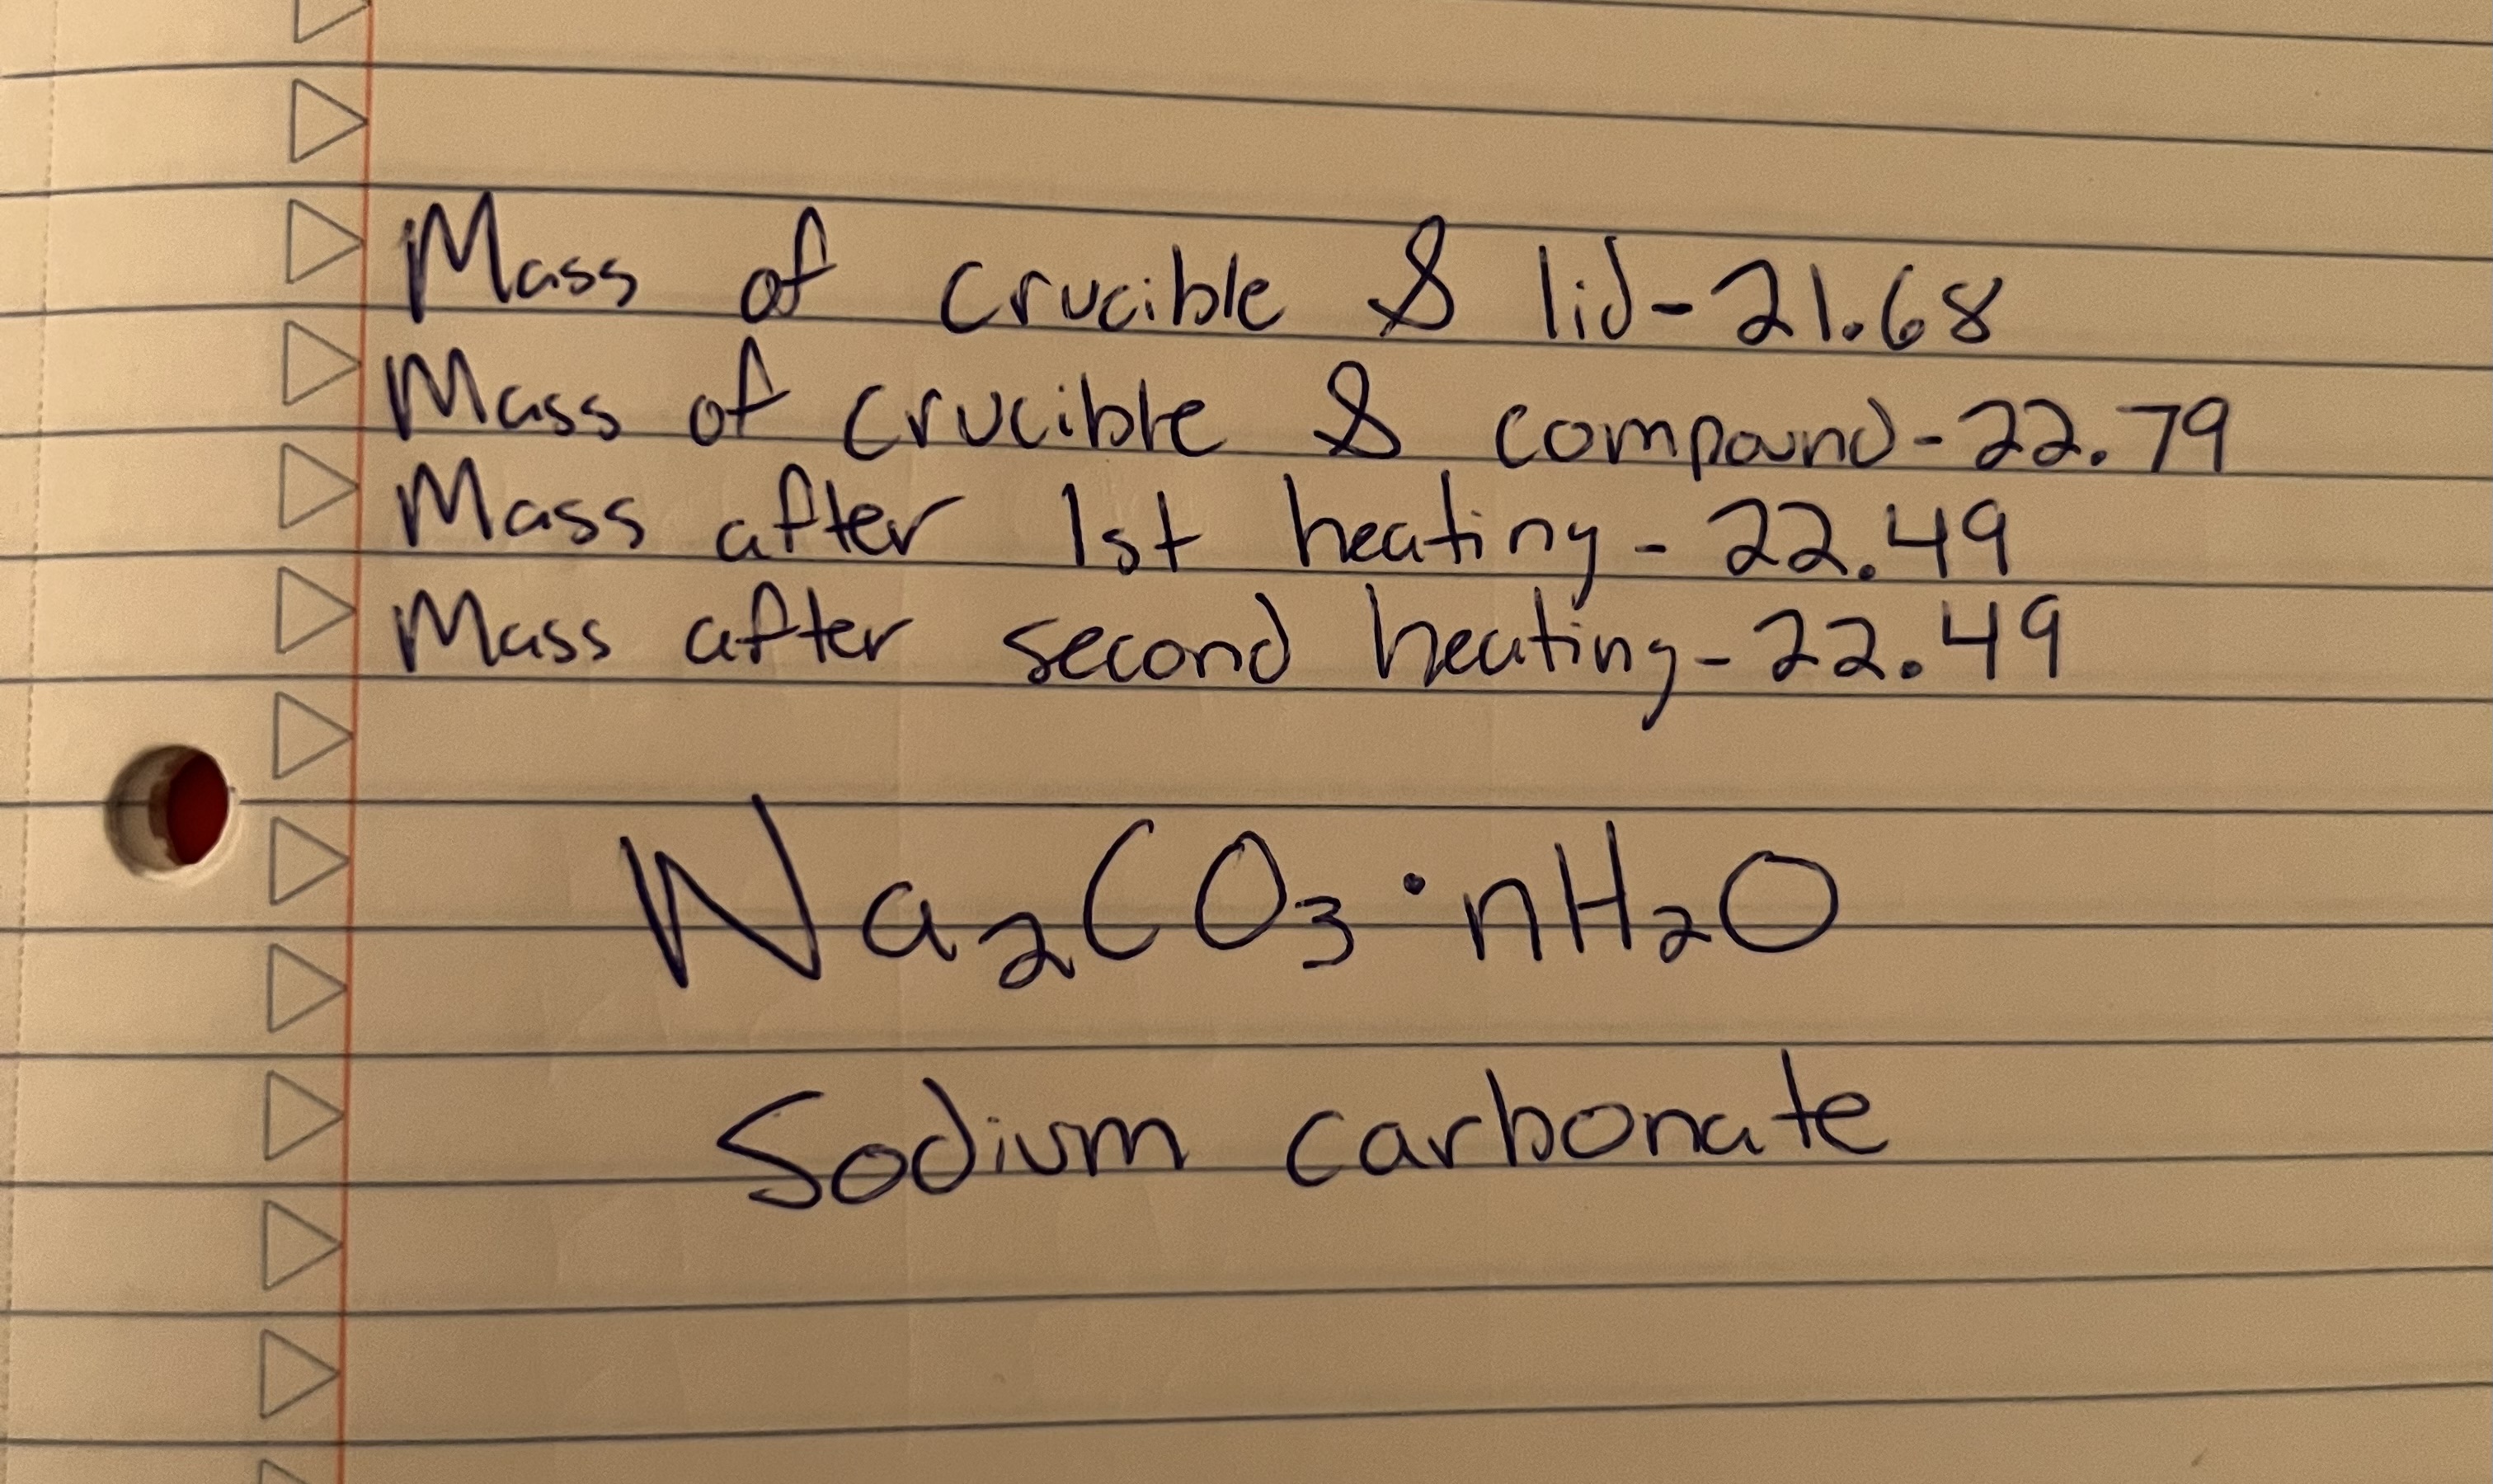 Mass of crucible & lid-21.68
Mass of crucible & compound-22.79
Mass after 1st heating-22.49
Mass after second heating-22.49
Na₂CO₃·nH₂O
Sodium carbonate